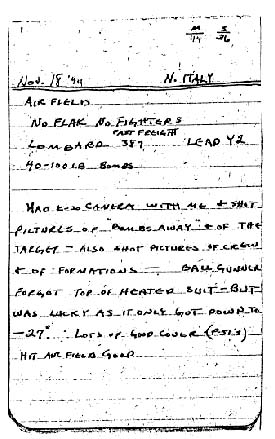 M S
19 36
Nov. 18 '44 No ITALY
AIRFIELD
NO FLAK NO FIGHTERS
FAST FREIGHT
LOMBARD 387 LEAD Y2
40-100LB BOMBS
HAD K-20 CAMERA WITH ME & SHOT
PICTURES OF "BOMBS AWAY" & OF THE
TARGET - ALSO SHOT PICTURES OF CREW
& OF FORMATIONS. BALL GUNNER
FORGOT TOP OF HEATED SUIT - BUT
WAS LUCKY AS IT ONLY GOT DOWN TO
-27°. LOTS OF GOOD COVER (P51's)
HIT AIR FIELD GOOD